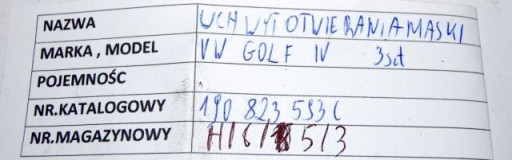 NAZWA UCHWYT OTWIERANIA MASKI
MARKA , MODEL VW GOLF IV 3szt
POJEMNOŚC
NR.KATALOGOWY 190 823 593 C
NR.MAGAZYNOWY H/6/5/3